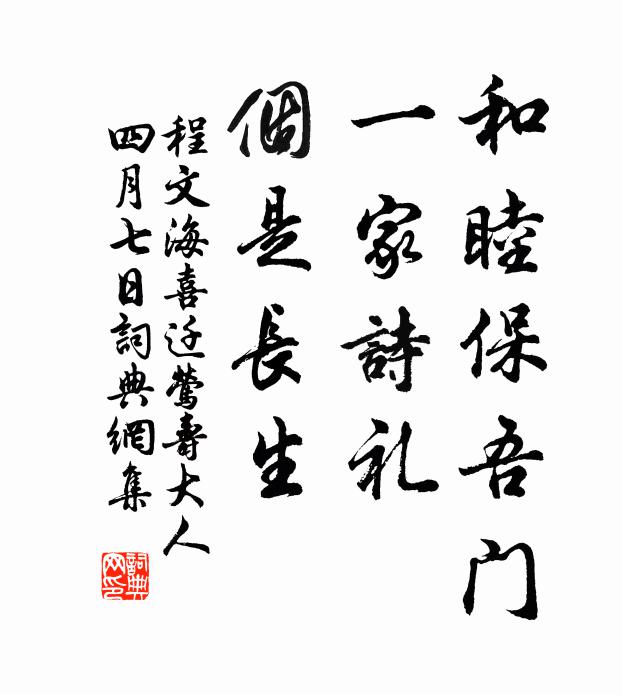 和睦保吾门
一家詩礼
個是長生
程文海喜迁鶯壽大人
四月七日詞典網集
詞典网印